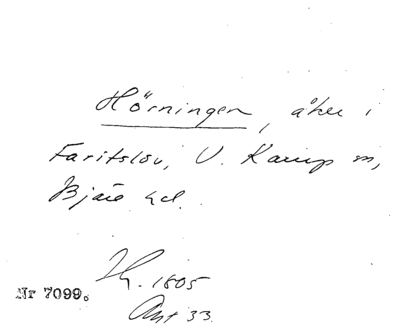 Hörningen, åker i
Faritslöv, V. Karup sn,
Bjäre hd.
1805
Nr 7099.
Akt 33